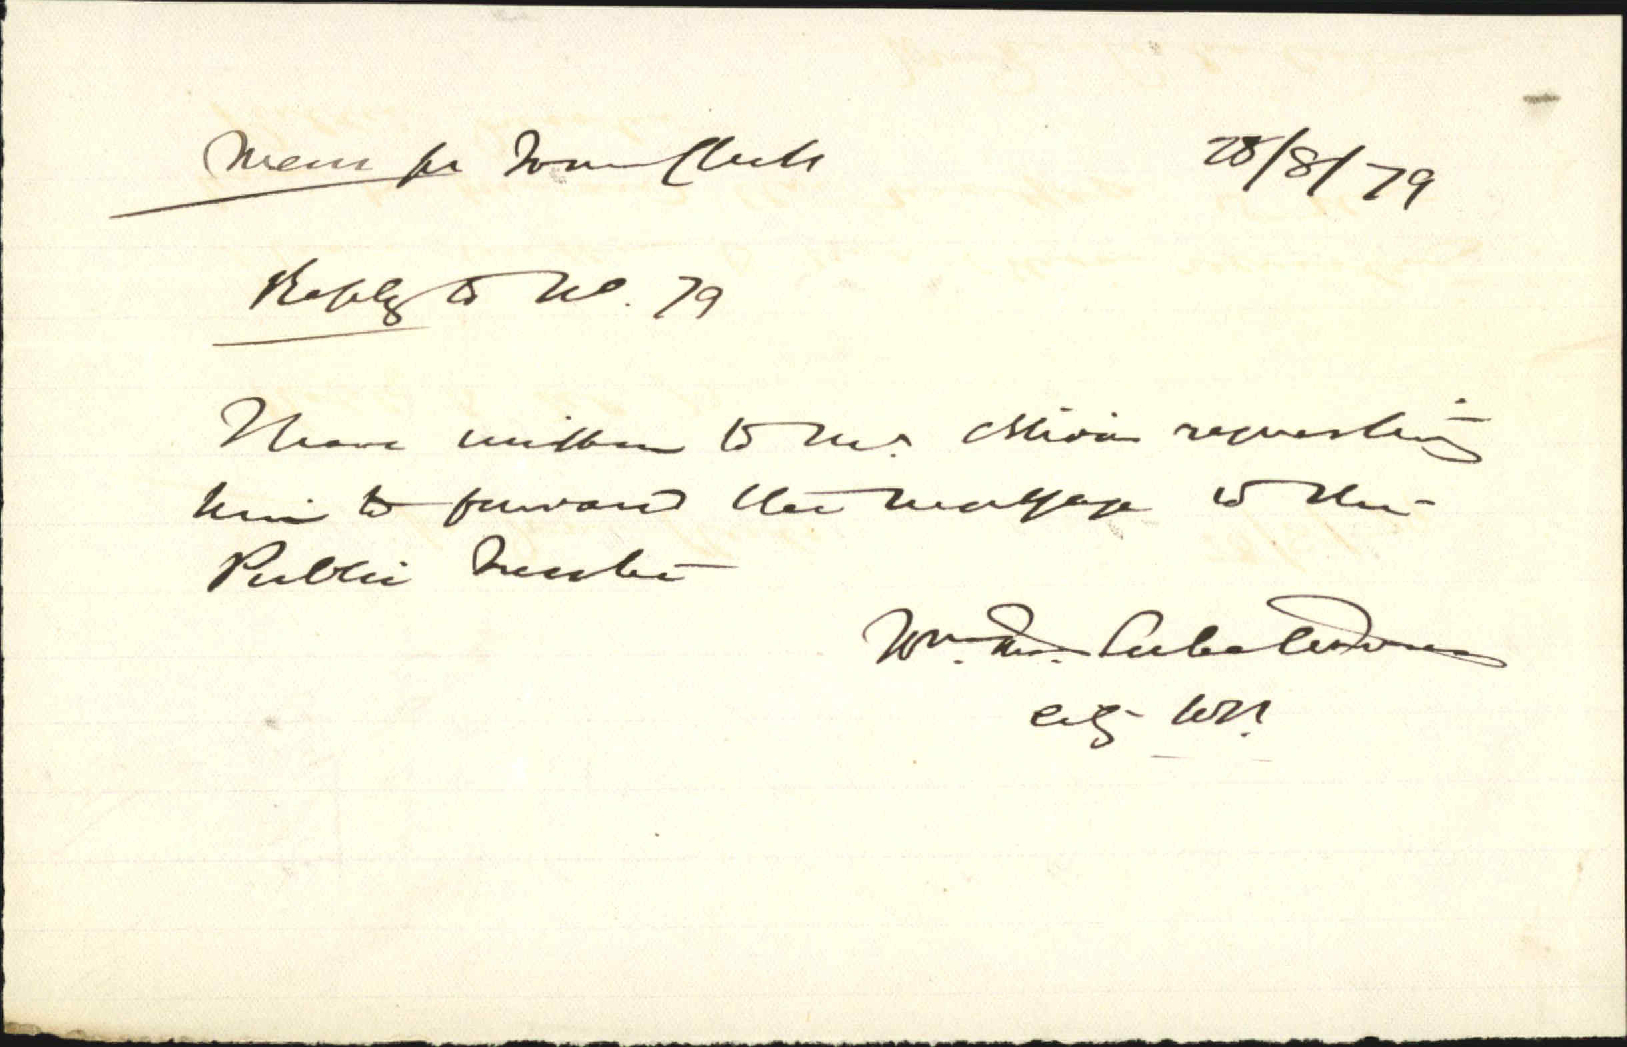 Memo for Town Clerk 28/8/79
Reply to No. 79
I have written to Mr. requesting
him to forward the mortgage to the
Public Trustee
Wm. 
City